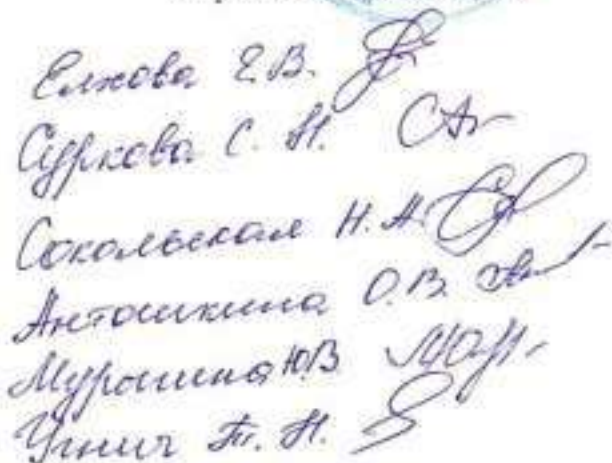 Елхова Е.В.
Суркова С. Н.
Сокольская Н. А.
Антошкина О.В.
Мурашина Ю.В
Угнич Т. Н.